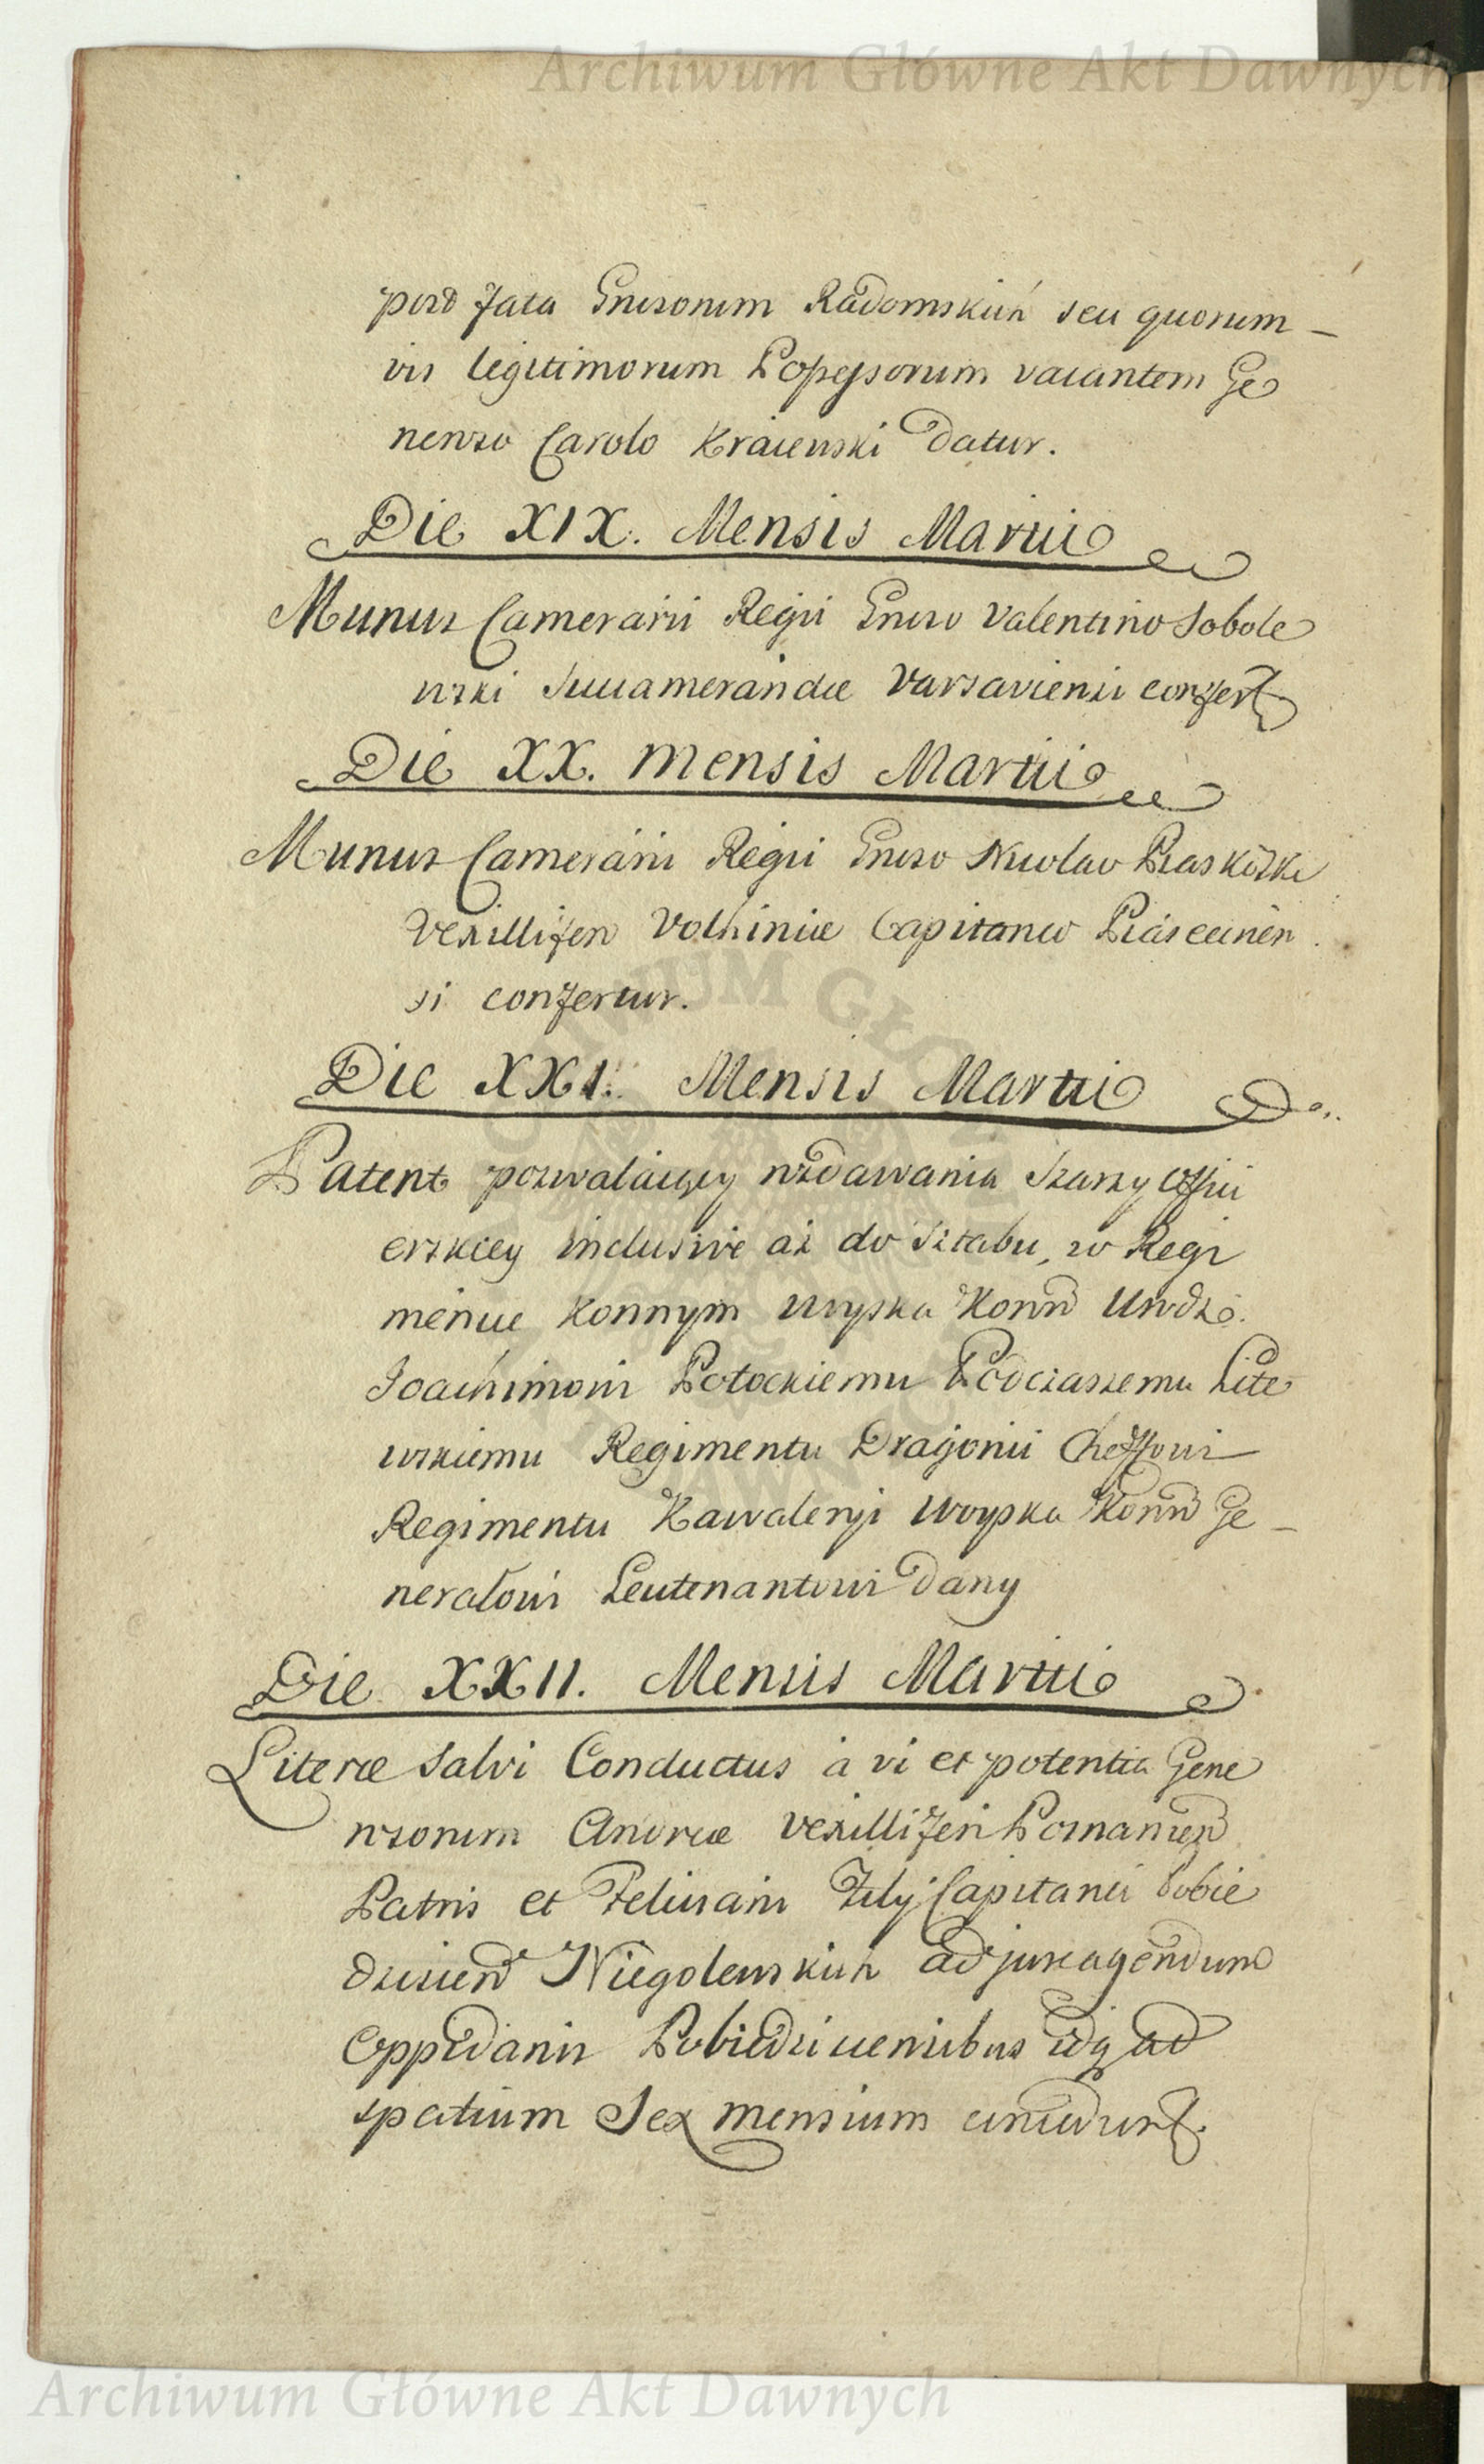 Archiwum Główne Akt Dawnych
post fata Gnrsorum Radomskich seu quorum-
vis legitimorum Possessorum vacantem Ge
neroso Carolo Kraiewski datur.
Die XIX. Mensis Martii
Munus Camerarii Regii Gnroso Valentino Sobole
wski Succamerandae Varsaviensi confert
Die XX. Mensis Martii
Munus Camerarii Regii Gnroso Nicolao Piaskoski
Vexillifero Volhiniae Capitaneo Piasecinen
si confertur.
Die XXI. Mensis Martii
Patent pozwalaiący wydawania Szarży Offici
erskiey inclusive aż do Sztabu, w Regi
mencie Konnym Woyska Konn Urodz.
Joachimowi Potockiemu Podczaszemu Lite
wskiemu Regimentu Dragonii Cheffowi
Regimentu Kawaleryi Woyska Konn Ge-
nerałowi Leutenantowi dany
Die XXII. Mensis Martii
Literae Salvi Conductus à vi et potentia Gene
rsorum Andreae Vexilliferi Posnanien
Patris et Feliciani Filij Capitanei Pobie
dzicien Niegolewskich ad jure agendum
Oppidanis Pobiedzicensibus idq ad
spatium Sex mensium
Archiwum Główne Akt Dawnych